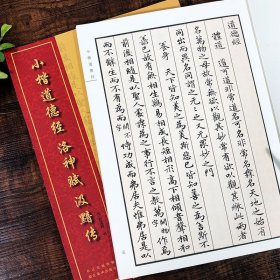 道德經
體道 道可道非常道名可名非常名無名天地之始有
名萬物之母故常無欲以觀其妙常有欲以觀其徼此兩者
同出而異名同謂之玄玄之又玄眾妙之門
養身 天下皆知美之為美斯惡已皆知善之為善斯不
善已故有無相生難易相成長短相形高下相傾音聲相和
前後相隨是以聖人處無為之事行不言之教萬物作焉
而不辭生而不有為而不恃功成而弗居夫惟弗居是以
小楷道德經洛神賦汲黯傳